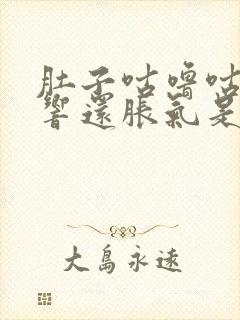 肚子咕噜咕
響還脹氣是
大島永遠